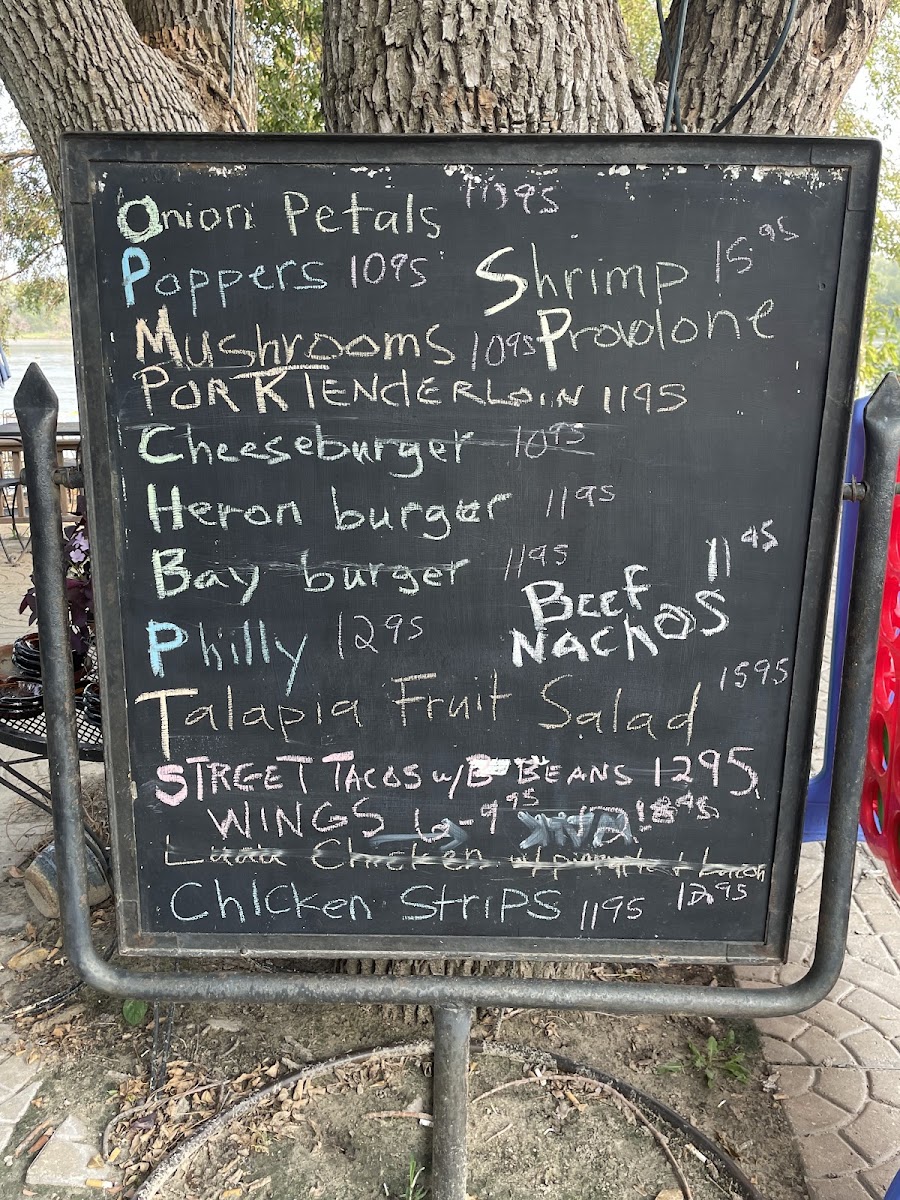 Onion Petals 1195
Poppers 1095 Shrimp 15 95
Mushrooms 1095 Provolone
PORK TENDERLOIN 1195
Cheeseburger 10 95
Heron burger 11 95
Bay burger 1195
BEEF NACHOS 11 45
Philly 1295
Talapia Fruit Salad 1595
STREET TACOS w/ BEANS 1295
WINGS 6-9 95 12 18 95
Chicken
Chicken Strips 1195 1295